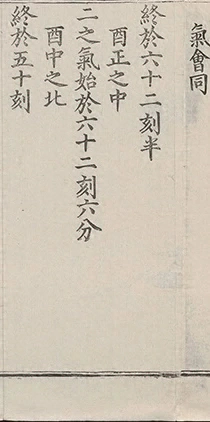 氣會同
終於六十二刻半
酉正之中
二之氣始於六十二刻六分
酉中之北
終於五十刻